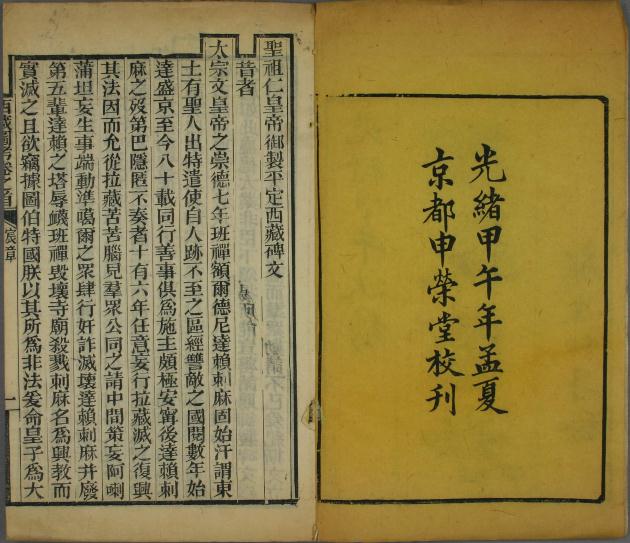 光緒甲午年孟夏
京都申榮堂校刊
聖祖仁皇帝御製平定西藏碑文
昔者
太宗文皇帝之崇德七年班禪額爾德尼達賴喇麻固始汗謂東
土有聖人出特遣使自人跡不至之區經讐敵之國閱數年始
達盛京至今八十載同行善事俱為施主頗極安甯後達賴喇
麻之歿第巴隱匿不奏者十有六年任意妄行拉藏滅之復興
其法因而允從拉藏苦苦腦兒羣眾公同之請中間策妄阿喇
蒲坦妄生事端動準噶爾之眾肆行奸詐滅壞達賴喇麻并廢
第五輩達賴之塔辱衊班禪毀壞寺廟殺戮喇麻名為興教而
實滅之且欲竊據圖伯特國朕以其所為非法爰命皇子為大
西藏圖考卷之首
宸章
一